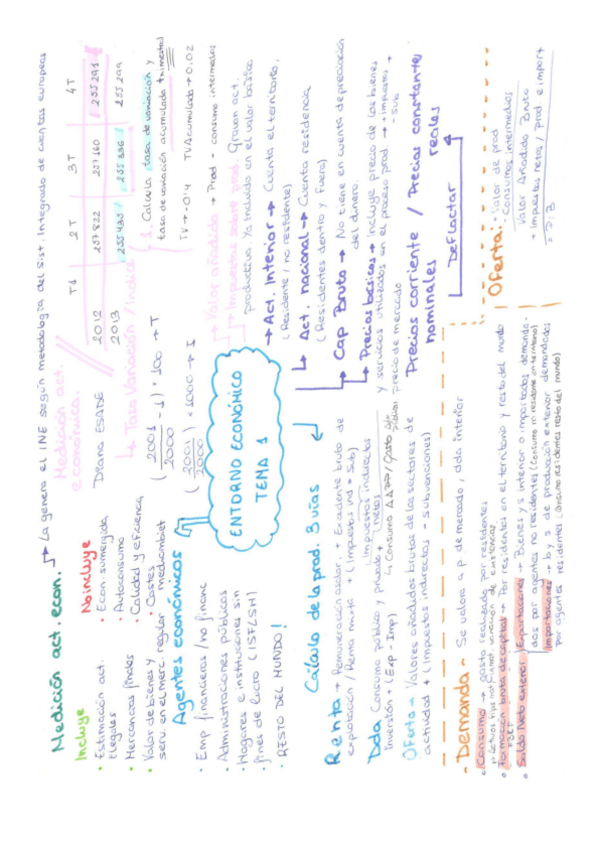 Medición act. econ. → La genera el INE según metodología del Sist. Integrado de cuentas europeas
Incluye
• Estimación act. ilegales
• Mercancías finales
• Valor de bienes y
serv. en el merc. regular
No incluye
• Econ. sumergida
• Autoconsumo
• Calidad y eficiencia
• Costes
medioambiet
Medición act.
económica.
Diana ESADE
T1 2T 3T 4T
2012 257822 257160 255291
2013 255435 255336 255299
↳ Tasa Variación / Índice
(2001/2000 - 1) · 100 → T
(2001/2000) × 1000 → I
1. Calcula tasa de variación y
tasa de variación acumulada trimestral
TV → -0'4 TVAcumulada → 0.02
Agentes económicos
• Emp financieras / no financ
• Administraciones públicas
• Hogares e instituciones sin
fines de lucro (ISFLSH)
• RESTO DEL MUNDO!
ENTORNO ECONÓMICO
TEMA 1
→ Valor añadido → Prod - consumo intermedios
→ Impuestos sobre prod. Gravan act.
productiva. Ya incluido en el valor básico
→ Act. Interior → Cuenta el territorio.
(Residente / no residente)
Act. nacional → Cuenta residencia
(Residentes dentro y fuera)
Cap Bruto → No tiene en cuenta depreciación
del dinero.
Precios básicos → Incluye precio de los bienes
y servicios utilizados en el proceso prod. → -impuestos +
-sub
precio de mercado
Precios corriente / Precios constante
nominales reales
Deflactar
Cálculo de la prod. 3 vías
Renta → Remuneración asalar. + Excedente bruto de
explotación / Renta mixta + (Impuestos ind - Sub)
Impuestos indirectos
netos
Dda Consumo público y privado +
Inversión + (Exp - Imp)
Oferta → Valores añadidos brutos de los sectores de
actividad + (Impuestos indirectos - Subvenciones)
- Demanda - Se valora a p. de mercado, dda interior
• Consumo → gasto realizado por residentes
• Formación bruta de capital Por residentes en el territorio y resto del mundo
• Saldo Neto exterior
Exportaciones → Bienes y s interior o importados demanda-
dos por agentes no residentes (Consumo no residente en territorio)
Importaciones → b y s de producción exterior demandados
por agentes residentes (consumo residentes resto del mundo)
Oferta: • Valor de prod
- Consumos intermedios
Valor Añadido Bruto
+ Impuestos netos / Prod e import
= PIB